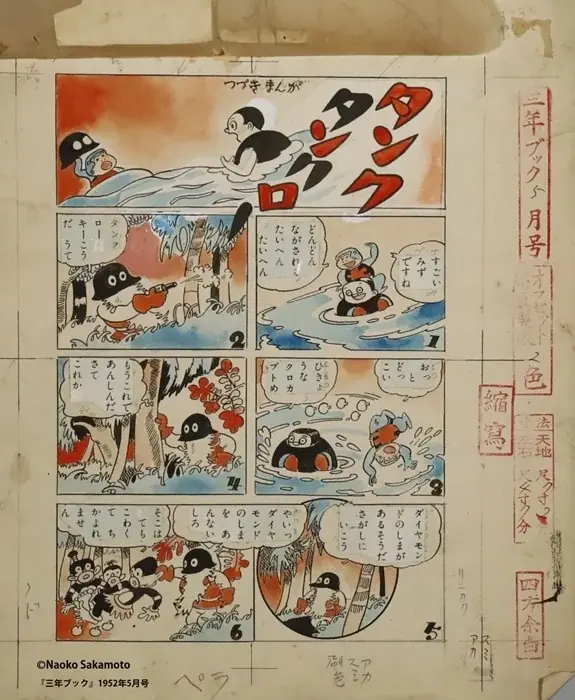 つづきまんが
タンク
タンクロー
すごい
みず
ですね
どんどん
ながされ
たいへん
たいへん
1
タンク
ロー
キーこう
だ うて
2
おっ
と
どっ
こい
ひきょ
うな
クロカ
ブトめ
3
もうこれで
あんしんだ
さて
これか
4
ダイヤモン
ドのしまが
あるそうだ
さがしに
いこう
5
やいっ
ダイヤ
モンド
のしま
をあ
んない
しろ
そこは
とても
こわく
てち
かよれ
ませ
ん
6
三年ブック5月号
2色
縮寫
天地
四方余白
スミ
アカ
ペラ
©Naoko Sakamoto
『三年ブック』1952年5月号